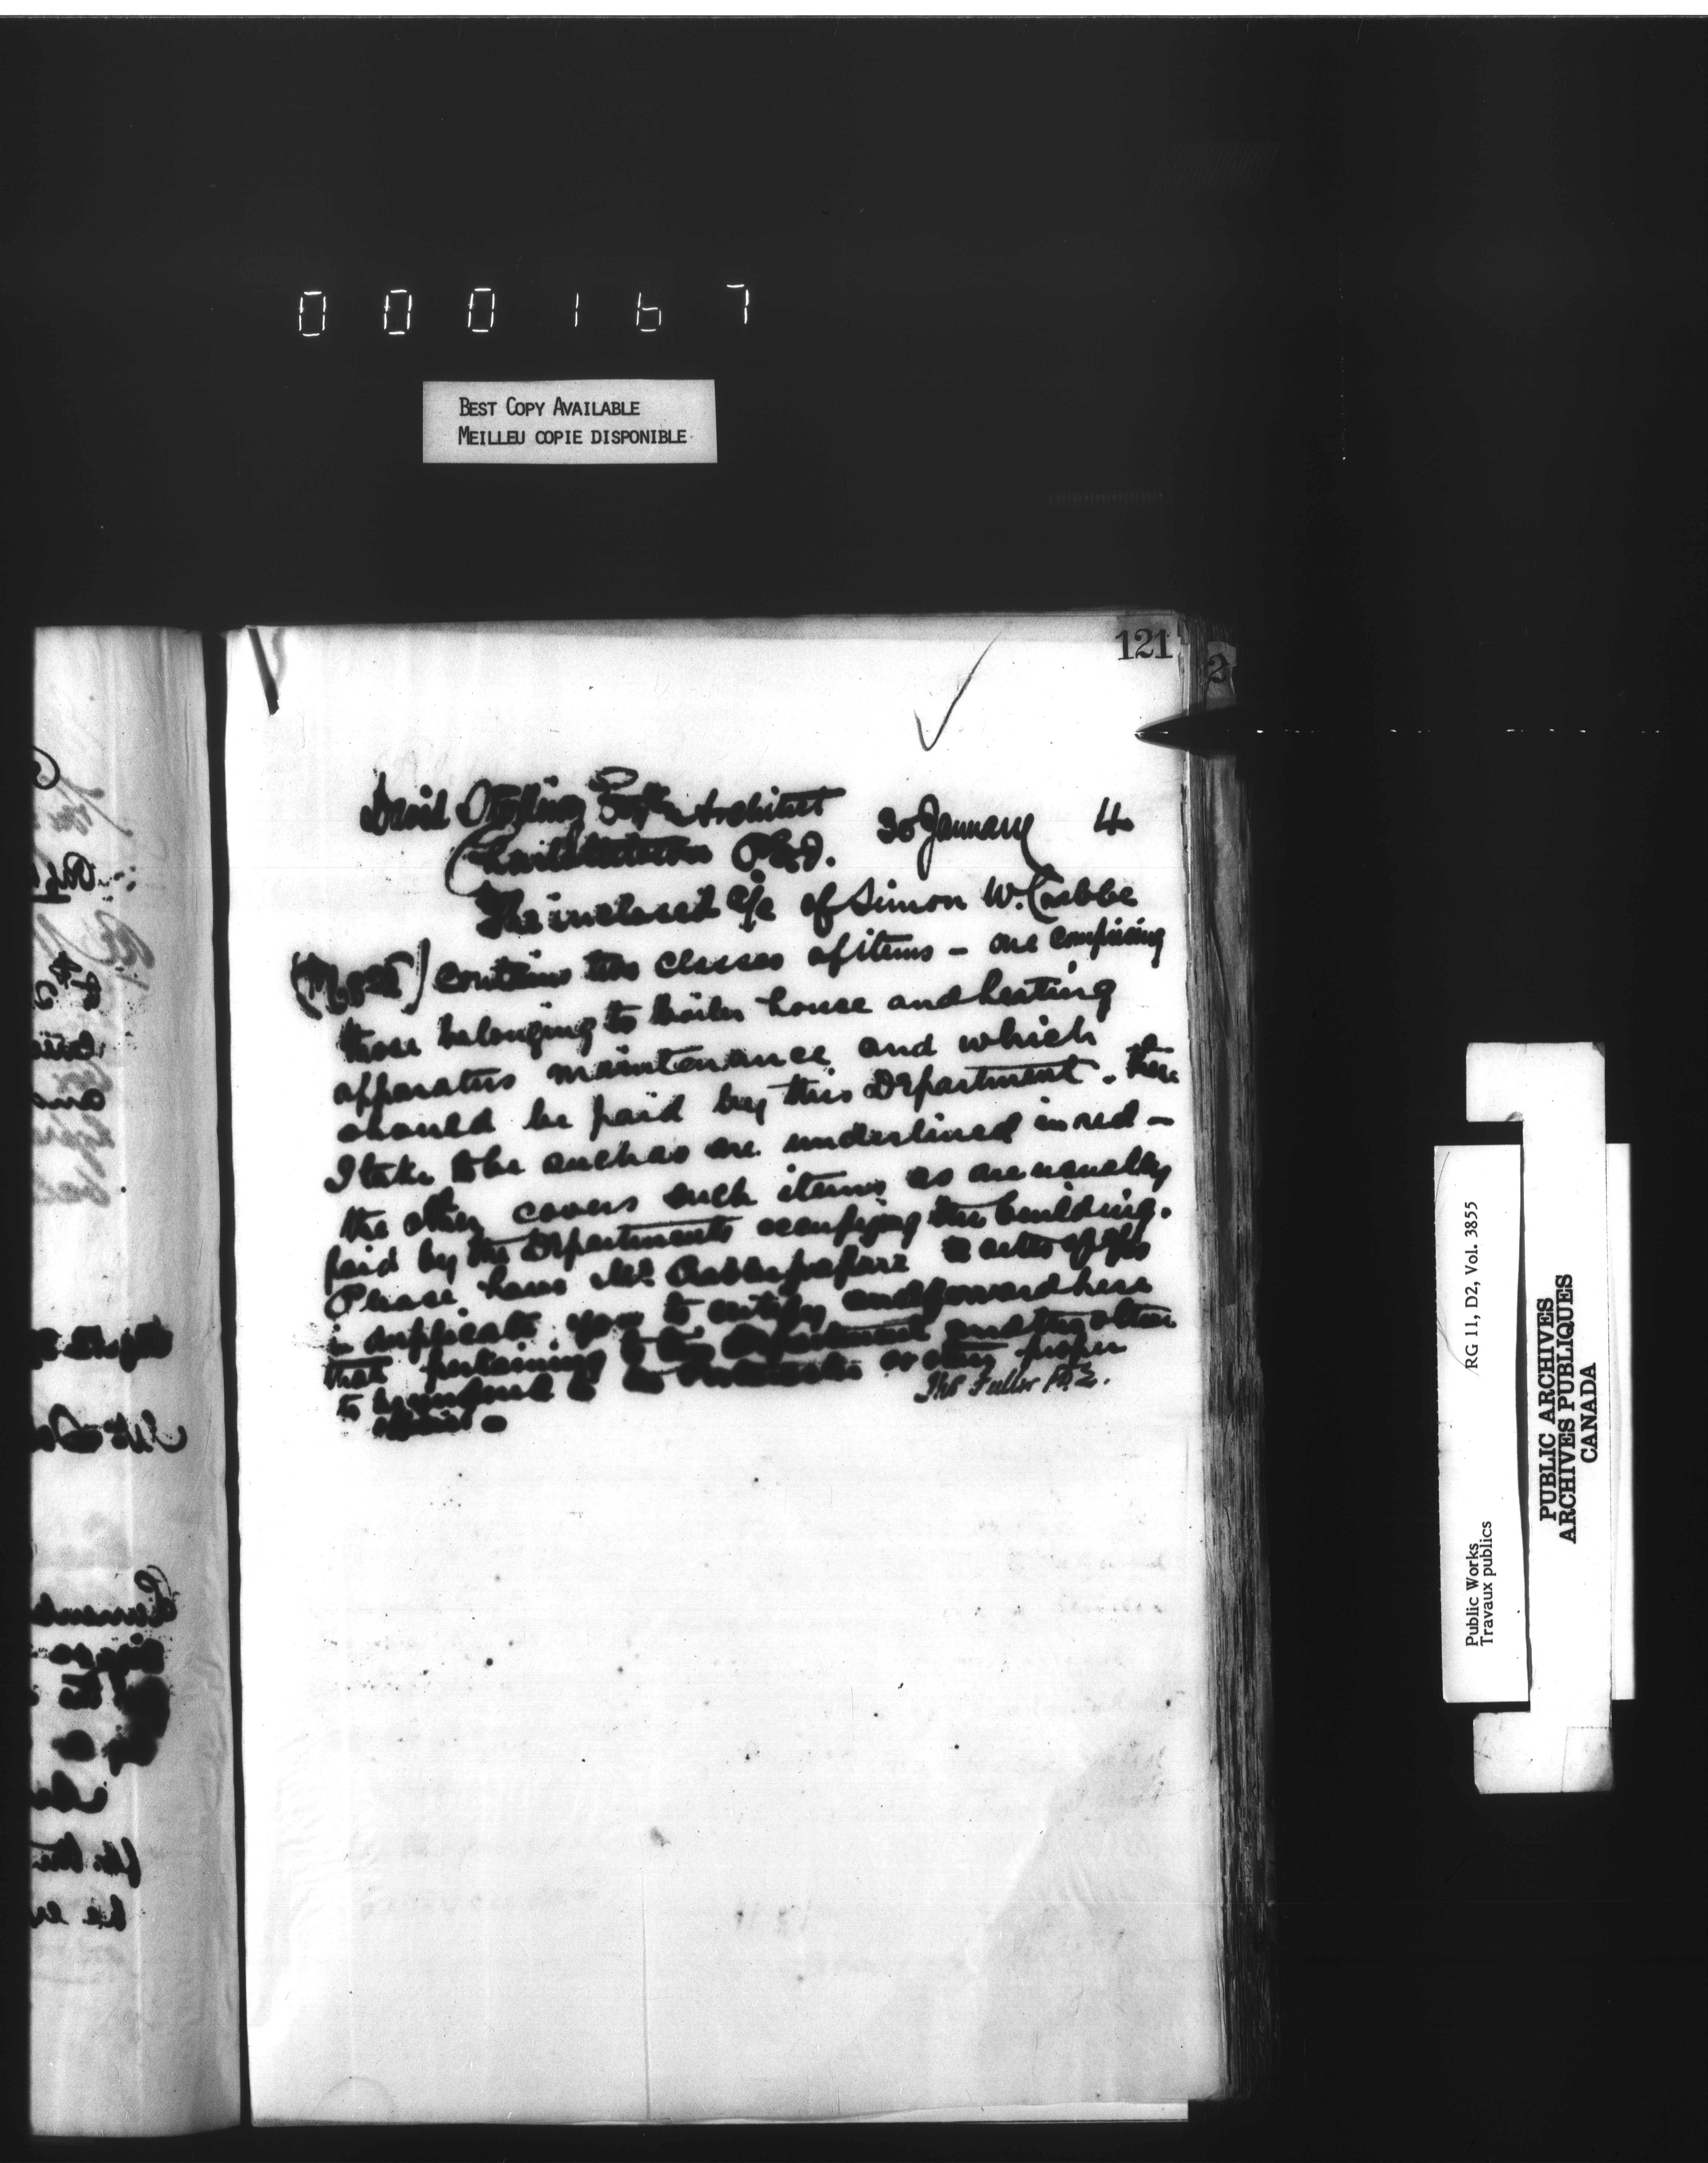 000167
BEST COPY AVAILABLE
MEILLEU COPIE DISPONIBLE
121
2
David Stirling Esqre Architect
Charlottetown P.E.I. 30 January 4
The inclosed a/c of Simon W. Crabbe
contains two classes of items - one comprising
those belonging to boiler house and heating
apparatus maintenance and which
should be paid by this Department. These
I take to be such as are underlined in red -
the other covers such items as are usually
paid by the Departments occupying the building.
Please have Mr. Crabbe prepare
in duplicate, you to certify and forward here
that pertaining to this Department and the other
to be to the or other proper
officer -
Thos Fuller
RG 11, D2, Vol. 3855
Public Works
Travaux publics
PUBLIC ARCHIVES
ARCHIVES PUBLIQUES
CANADA